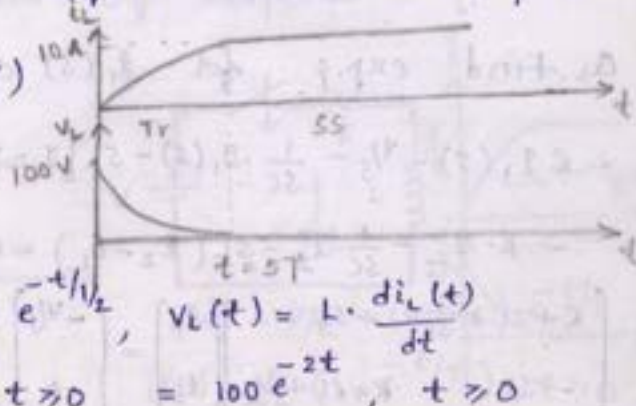 i_L
10 A
)
Tr SS t
V_L
100 V
t = 5T t
e^{-t/1/2}, V_L(t) = L · di_L(t)/dt
t ≥ 0 = 100 e^{-2t}, t ≥ 0